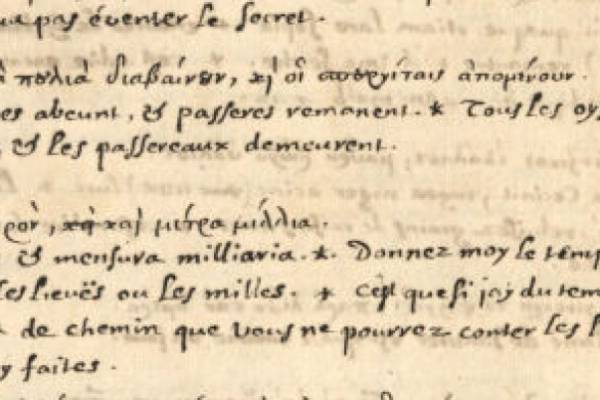 ua pas éventer le secret.
πουλιὰ διαβαίνουν, κỳ οἱ σπουργίταις ἀπομένουν.
es abeunt, & passeres remanent. * Tous les oys
, & les passereaux demeurent.
ρὸν, καὶ μέτρα μίλλια.
& mensura milliaria. *. Donnez moy le temp
les lieuës ou les milles. * C'est que si j'ay du tem
de chemin que vous ne pourrez conter les l
y faites.